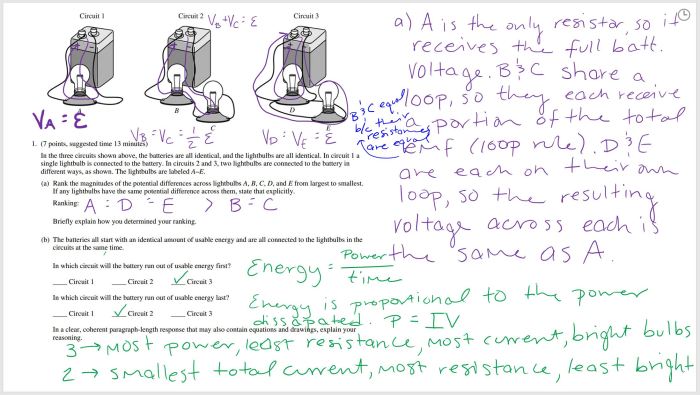 Circuit 1
Circuit 2
V_B + V_C = ε
Circuit 3
V_A = ε
B
C
V_B = V_C = 1/2 ε
D
E
V_D = V_E = ε
1. (7 points, suggested time 13 minutes)
In the three circuits shown above, the batteries are all identical, and the lightbulbs are all identical. In circuit 1 a
single lightbulb is connected to the battery. In circuits 2 and 3, two lightbulbs are connected to the battery in
different ways, as shown. The lightbulbs are labeled A–E.
(a) Rank the magnitudes of the potential differences across lightbulbs A, B, C, D, and E from largest to smallest.
If any lightbulbs have the same potential difference across them, state that explicitly.
Ranking: A = D = E > B = C
Briefly explain how you determined your ranking.
(b) The batteries all start with an identical amount of usable energy and are all connected to the lightbulbs in the
circuits at the same time.
In which circuit will the battery run out of usable energy first?
___ Circuit 1 ___ Circuit 2 ✓ Circuit 3
In which circuit will the battery run out of usable energy last?
___ Circuit 1 ✓ Circuit 2 ___ Circuit 3
In a clear, coherent paragraph-length response that may also contain equations and drawings, explain your
reasoning.
a) A is the only resistor, so it
receives the full batt.
voltage. B & C share a
loop, so they each receive
a portion of the total
emf (loop rule). D & E
are each on their own
loop, so the resulting
voltage across each is
the same as A.
B & C equal
b/c their
resistances
are equal
Energy = Power/time
Energy is proportional to the power
dissapated. P = IV
3 → most power, least resistance, most current, bright bulbs
2 → smallest total current, most resistance, least bright